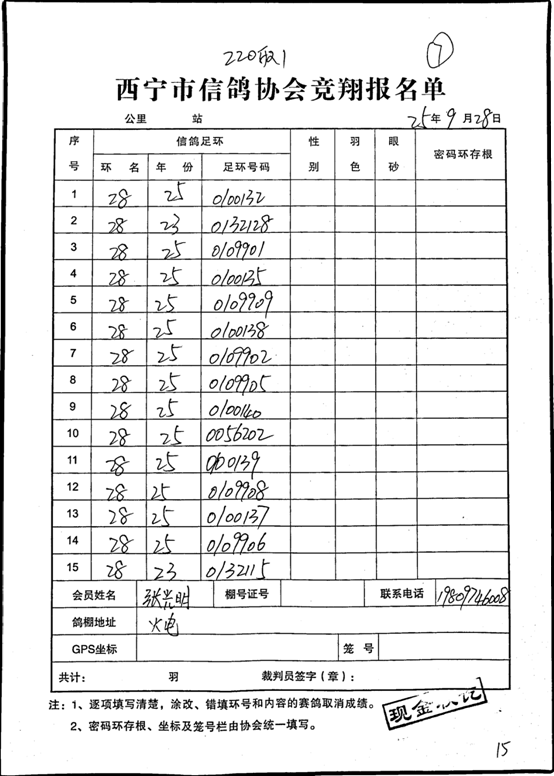 220取1
7
西宁市信鸽协会竞翔报名单
公里 站 25年9月28日
序号 信鸽足环 性别 羽色 眼砂 密码环存根
环名 年份 足环号码
1 28 25 0100132
2 28 23 0132128
3 28 25 0109901
4 28 25 0100135
5 28 25 0109909
6 28 25 0100138
7 28 25 0109902
8 28 25 0109905
9 28 25 0100140
10 28 25 0056202
11 28 25 0100139
12 28 25 0109908
13 28 25 0100137
14 28 25 0109906
15 28 23 0132115
会员姓名 张兴明 棚号证号 联系电话 19809746008
鸽棚地址 火电
GPS坐标 笼号
共计: 羽 裁判员签字(章):
注:1、逐项填写清楚,涂改、错填环号和内容的赛鸽取消成绩。
2、密码环存根、坐标及笼号栏由协会统一填写。
现金
15